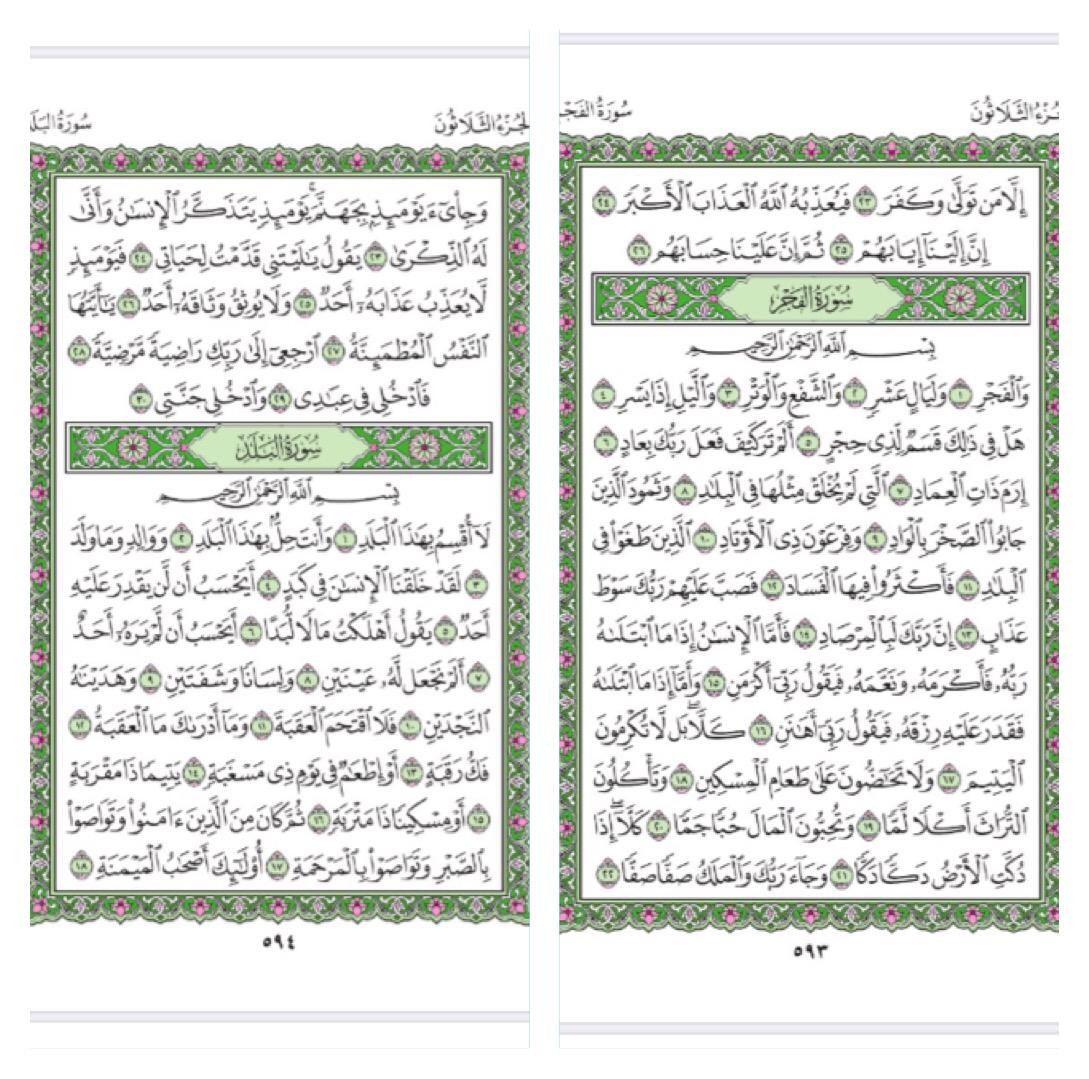 الجزء الثلاثون
سورة الفجر
إِلَّا مَن تَوَلَّىٰ وَكَفَرَ ٢٣ فَيُعَذِّبُهُ ٱللَّهُ ٱلْعَذَابَ ٱلْأَكْبَرَ ٢٤
إِنَّ إِلَيْنَآ إِيَابَهُمْ ٢٥ ثُمَّ إِنَّ عَلَيْنَا حِسَابَهُم ٢٦
سُورَةُ الفَجْرِ
بِسْمِ ٱللَّهِ ٱلرَّحْمَٰنِ ٱلرَّحِيمِ
وَٱلْفَجْرِ ١ وَلَيَالٍ عَشْرٍ ٢ وَٱلشَّفْعِ وَٱلْوَتْرِ ٣ وَٱلَّيْلِ إِذَا يَسْرِ ٤
هَلْ فِي ذَٰلِكَ قَسَمٌ لِّذِي حِجْرٍ ٥ أَلَمْ تَرَ كَيْفَ فَعَلَ رَبُّكَ بِعَادٍ ٦
إِرَمَ ذَاتِ ٱلْعِمَادِ ٧ ٱلَّتِي لَمْ يُخْلَقْ مِثْلُهَا فِي ٱلْبِلَٰدِ ٨ وَثَمُودَ ٱلَّذِينَ
جَابُوا۟ ٱلصَّخْرَ بِٱلْوَادِ ٩ وَفِرْعَوْنَ ذِي ٱلْأَوْتَادِ ١٠ ٱلَّذِينَ طَغَوْا۟ فِي
ٱلْبِلَٰدِ ١١ فَأَكْثَرُوا۟ فِيهَا ٱلْفَسَادَ ١٢ فَصَبَّ عَلَيْهِمْ رَبُّكَ سَوْطَ
عَذَابٍ ١٣ إِنَّ رَبَّكَ لَبِٱلْمِرْصَادِ ١٤ فَأَمَّا ٱلْإِنسَٰنُ إِذَا مَا ٱبْتَلَىٰهُ
رَبُّهُۥ فَأَكْرَمَهُۥ وَنَعَّمَهُۥ فَيَقُولُ رَبِّيٓ أَكْرَمَنِ ١٥ وَأَمَّآ إِذَا مَا ٱبْتَلَىٰهُ
فَقَدَرَ عَلَيْهِ رِزْقَهُۥ فَيَقُولُ رَبِّيٓ أَهَٰنَنِ ١٦ كَلَّا ۖ بَل لَّا تُكْرِمُونَ
ٱلْيَتِيمَ ١٧ وَلَا تَحَٰٓضُّونَ عَلَىٰ طَعَامِ ٱلْمِسْكِينِ ١٨ وَتَأْكُلُونَ
ٱلتُّرَاثَ أَكْلًا لَّمًّا ١٩ وَتُحِبُّونَ ٱلْمَالَ حُبًّا جَمًّا ٢٠ كَلَّآ ۖ إِذَا
دُكَّتِ ٱلْأَرْضُ دَكًّا دَكًّا ٢١ وَجَآءَ رَبُّكَ وَٱلْمَلَكُ صَفًّا صَفًّا ٢٢
٥٩٣
الجزء الثلاثون
سورة البلد
وَجِا۟يٓءَ يَوْمَئِذٍۭ بِجَهَنَّمَ ۚ يَوْمَئِذٍ يَتَذَكَّرُ ٱلْإِنسَٰنُ وَأَنَّىٰ
لَهُ ٱلذِّكْرَىٰ ٢٣ يَقُولُ يَٰلَيْتَنِي قَدَّمْتُ لِحَيَاتِي ٢٤ فَيَوْمَئِذٍ
لَّا يُعَذِّبُ عَذَابَهُۥٓ أَحَدٌ ٢٥ وَلَا يُوثِقُ وَثَاقَهُۥٓ أَحَدٌ ٢٦ يَٰٓأَيَّتُهَا
ٱلنَّفْسُ ٱلْمُطْمَئِنَّةُ ٢٧ ٱرْجِعِيٓ إِلَىٰ رَبِّكِ رَاضِيَةً مَّرْضِيَّةً ٢٨
فَٱدْخُلِي فِي عِبَٰدِي ٢٩ وَٱدْخُلِي جَنَّتِي ٣٠
سُورَةُ البَلَدِ
بِسْمِ ٱللَّهِ ٱلرَّحْمَٰنِ ٱلرَّحِيمِ
لَآ أُقْسِمُ بِهَٰذَا ٱلْبَلَدِ ١ وَأَنتَ حِلٌّۢ بِهَٰذَا ٱلْبَلَدِ ٢ وَوَالِدٍ وَمَا وَلَدَ
٣ لَقَدْ خَلَقْنَا ٱلْإِنسَٰنَ فِي كَبَدٍ ٤ أَيَحْسَبُ أَن لَّن يَقْدِرَ عَلَيْهِ
أَحَدٌ ٥ يَقُولُ أَهْلَكْتُ مَالًا لُّبَدًا ٦ أَيَحْسَبُ أَن لَّمْ يَرَهُۥٓ أَحَدٌ
٧ أَلَمْ نَجْعَل لَّهُۥ عَيْنَيْنِ ٨ وَلِسَانًا وَشَفَتَيْنِ ٩ وَهَدَيْنَٰهُ
ٱلنَّجْدَيْنِ ١٠ فَلَا ٱقْتَحَمَ ٱلْعَقَبَةَ ١١ وَمَآ أَدْرَىٰكَ مَا ٱلْعَقَبَةُ ١٢
فَكُّ رَقَبَةٍ ١٣ أَوْ إِطْعَٰمٌ فِي يَوْمٍ ذِي مَسْغَبَةٍ ١٤ يَتِيمًا ذَا مَقْرَبَةٍ
١٥ أَوْ مِسْكِينًا ذَا مَتْرَبَةٍ ١٦ ثُمَّ كَانَ مِنَ ٱلَّذِينَ ءَامَنُوا۟ وَتَوَاصَوْا۟
بِٱلصَّبْرِ وَتَوَاصَوْا۟ بِٱلْمَرْحَمَةِ ١٧ أُو۟لَٰٓئِكَ أَصْحَٰبُ ٱلْمَيْمَنَةِ ١٨
٥٩٤